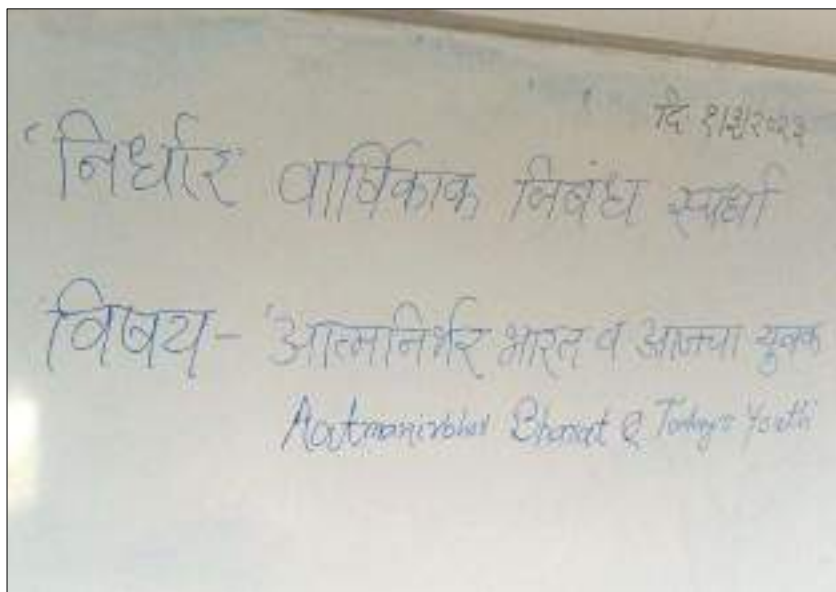 दि १/३/२०२३
'निर्धार वार्षिकांक निबंध स्पर्धा
विषय- 'आत्मनिर्भर भारत व आजचा युवक
Aatmanirbhar Bharat & Today's Youth